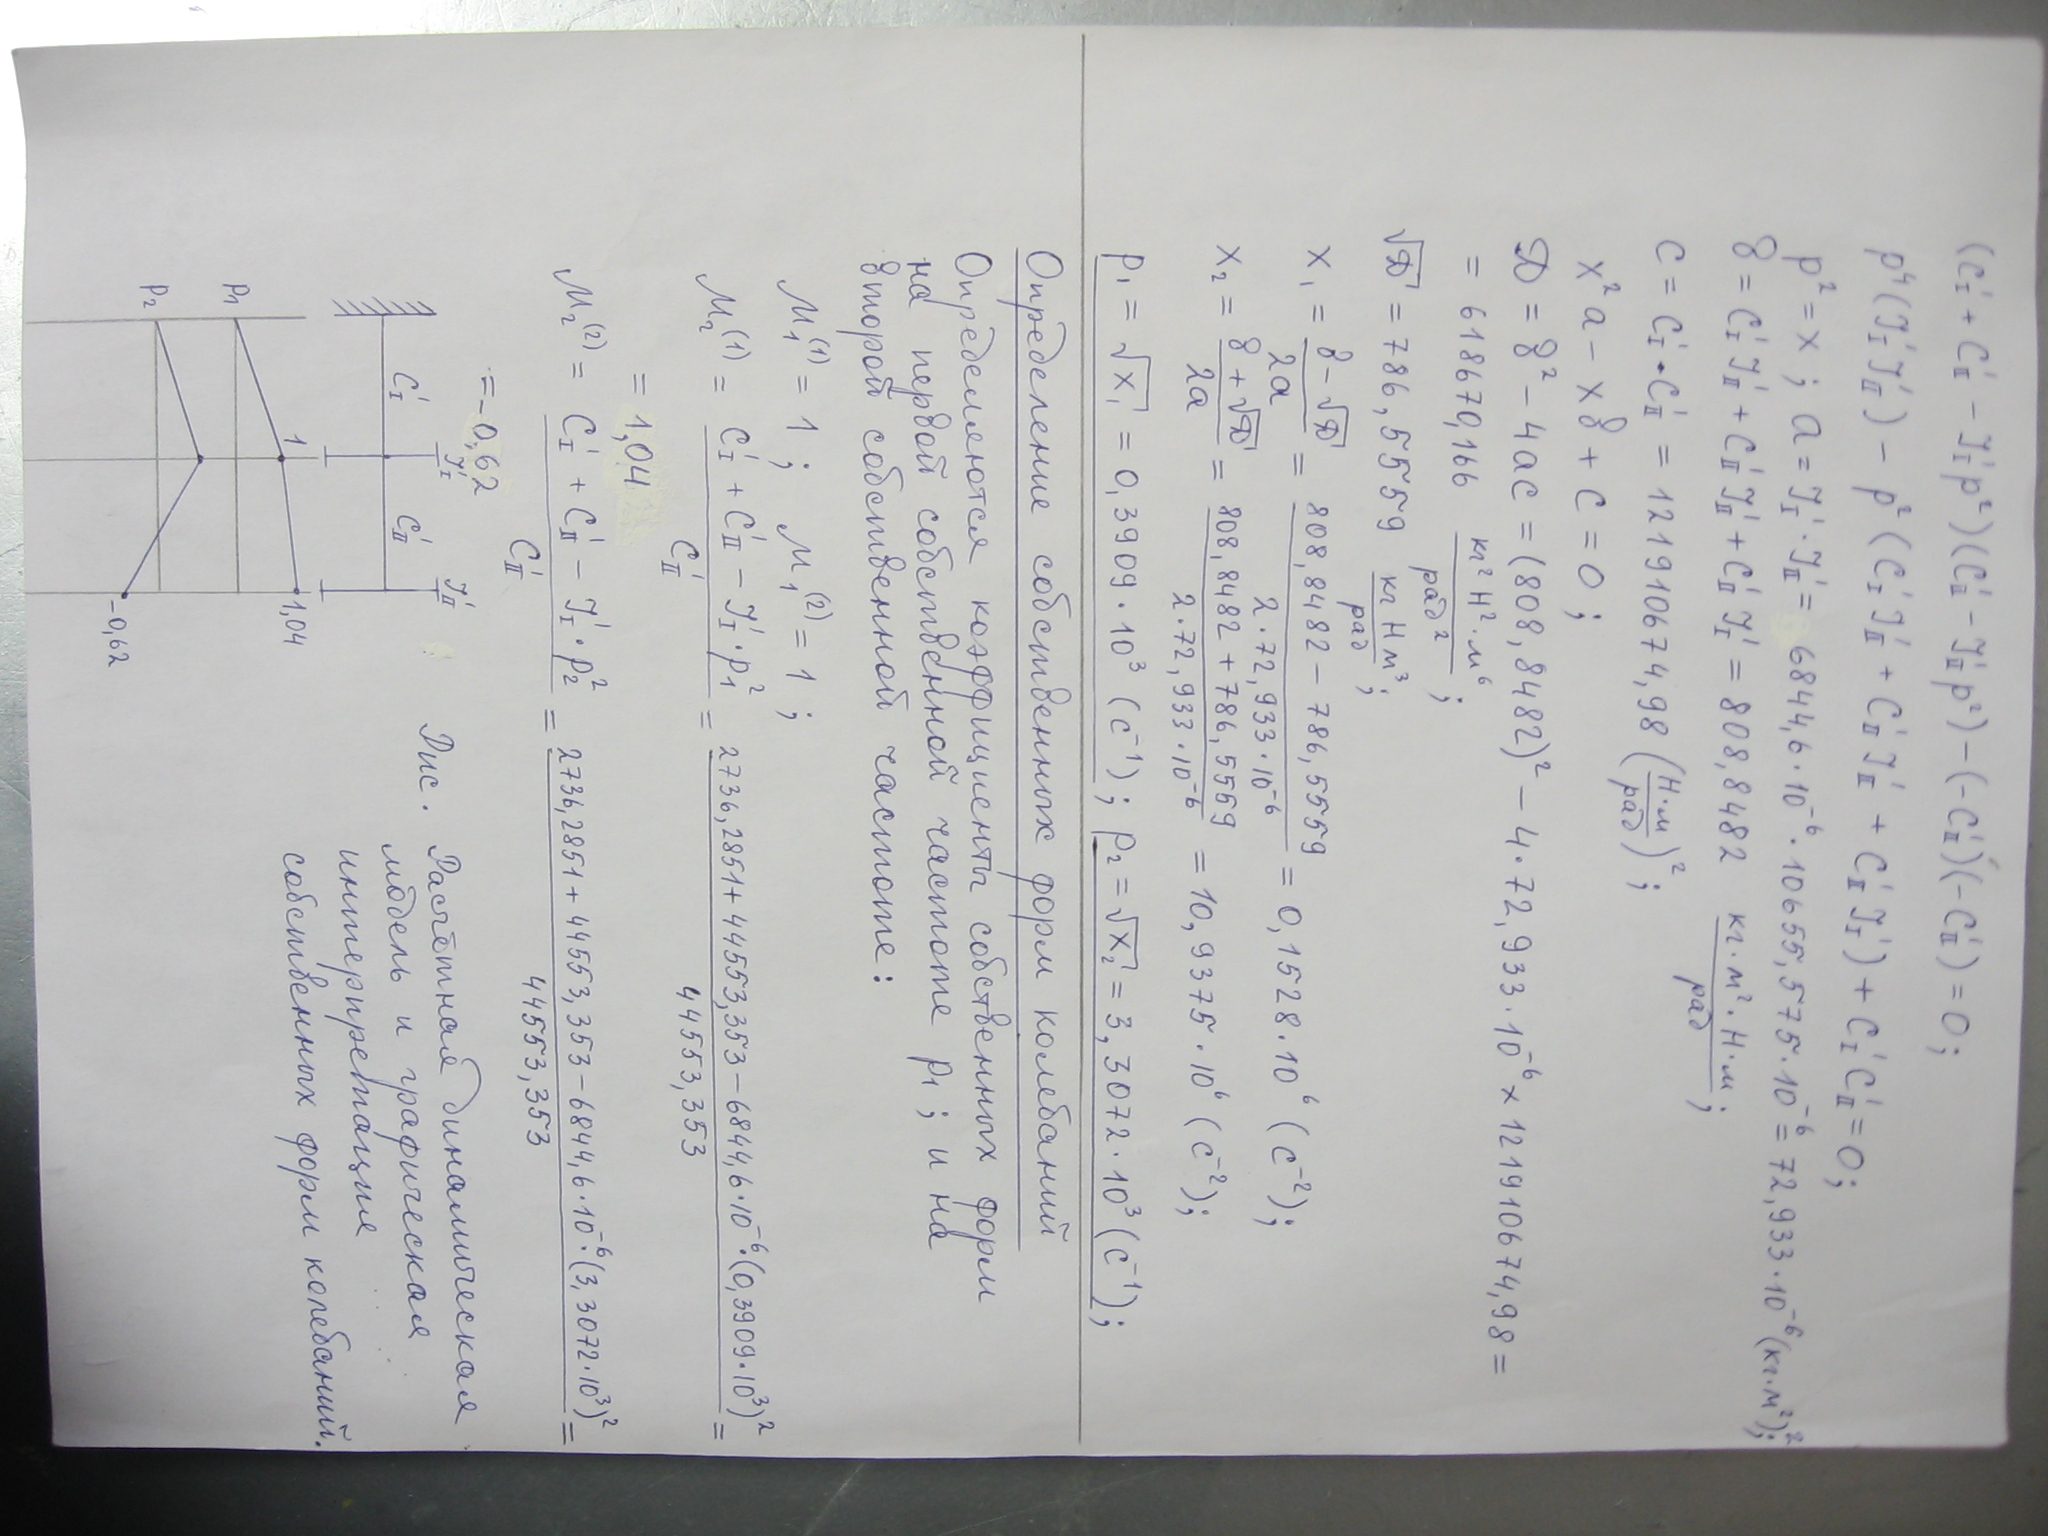 (C'_I + C'_II − J'_I p²)(C'_II − J'_II p²) − (−C'_II)(−C'_II) = 0;
p⁴(J'_I J'_II) − p²(C'_I J'_II + C'_II J'_II + C'_II J'_I) + C'_I C'_II = 0;
p² = x; a = J'_I · J'_II = 6844,6·10⁻⁶·10655,575·10⁻⁶ = 72,933·10⁻⁶ (кг·м²)²;
в = C'_I J'_II + C'_II J'_II + C'_II J'_I = 808,8482 кг·м²·Н·м/рад;
C = C'_I · C'_II = 121910674,98 (Н·м/рад)²;
x²a − xв + C = 0;
D = в² − 4ac = (808,8482)² − 4·72,933·10⁻⁶ × 121910674,98 =
= 618670,166 кг²Н²·м⁶/рад²;
√D = 786,55559 кгНм³/рад;
x₁ = (в − √D)/2a = (808,8482 − 786,55559)/(2·72,933·10⁻⁶) = 0,1528·10⁶ (с⁻²);
x₂ = (в + √D)/2a = (808,8482 + 786,55559)/(2·72,933·10⁻⁶) = 10,9375·10⁶ (с⁻²);
p₁ = √x₁ = 0,3909·10³ (с⁻¹); p₂ = √x₂ = 3,3072·10³ (с⁻¹);
Определение собственных форм колебаний
Определяются коэффициенты собственных форм
на первой собственной частоте p₁; и на
второй собственной частоте:
μ₁⁽¹⁾ = 1; μ₁⁽²⁾ = 1;
μ₂⁽¹⁾ = (C'_I + C'_II − J'_I · p₁²)/C'_II = (2736,2851 + 44553,353 − 6844,6·10⁻⁶·(0,3909·10³)²)/44553,353 =
= 1,04
μ₂⁽²⁾ = (C'_I + C'_II − J'_I · p₂²)/C'_II = (2736,2851 + 44553,353 − 6844,6·10⁻⁶·(3,3072·10³)²)/44553,353 =
= −0,62
C'_I J'_I C'_II J'_II
p₁ 1 1,04
p₂ −0,62
Рис. Расчётная динамическая
модель и графическая
интерпретация
собственных форм колебаний.